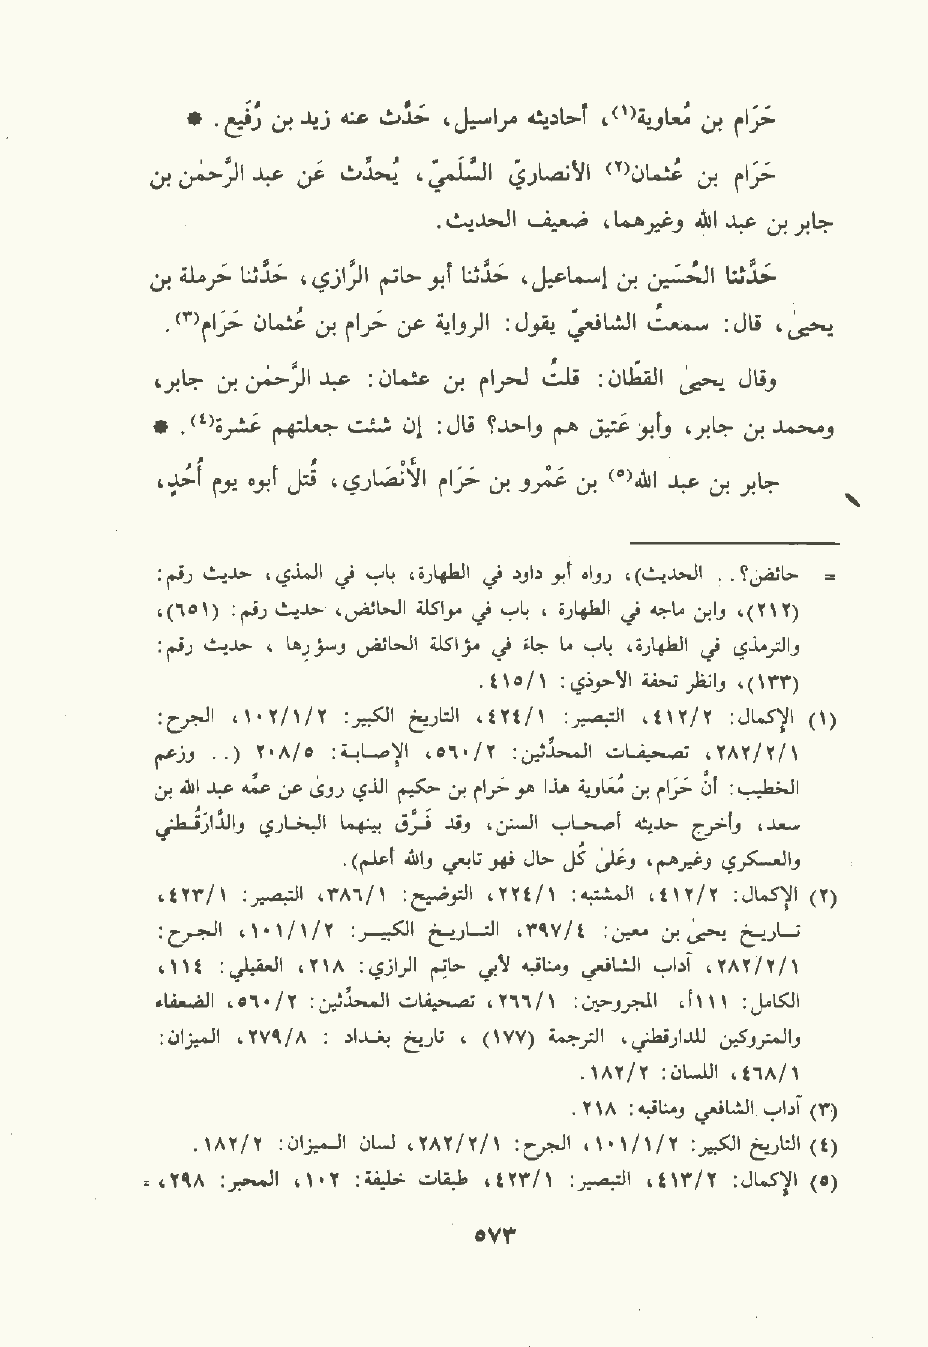 حَرَام بن مُعاوية(١)، أحاديثه مراسيل، حَدَّث عنه زيد بن رُفَيع. *
حَرَام بن عُثمان(٢) الأنصاريّ السَّلَميّ، يُحدِّث عَن عبد الرَّحمٰن بن
جابر بن عبد الله وغيرهما، ضعيف الحديث.
حَدَّثنا الحُسَين بن إسماعيل، حَدَّثنا أبو حاتم الرَّازي، حَدَّثنا حَرملة بن
يحيىٰ، قال: سمعتُ الشافعيَّ يقول: الرواية عن حرام بن عُثمان حَرَام(٣).
وقال يحيىٰ القطَّان: قلتُ لحرام بن عثمان: عبد الرَّحمٰن بن جابر،
ومحمد بن جابر، وأبو عَتيق هم واحد؟ قال: إن شئت جعلتهم عَشرة(٤). *
جابر بن عبد الله(٥) بن عَمْرو بن حَرَام الأَنْصَاري، قُتل أبوه يوم أُحُدٍ،
= حائض؟.. الحديث)، رواه أبو داود في الطهارة، باب في المذي، حديث رقم:
(٢١٢)، وابن ماجه في الطهارة، باب في مواكلة الحائض، حديث رقم: (٦٥١)،
والترمذي في الطهارة، باب ما جاء في مؤاكلة الحائض وسؤرها، حديث رقم:
(١٣٣)، وانظر تحفة الأحوذي: ٤١٥/١.
(١) الإكمال: ٤١٢/٢، التبصير: ٤٢٤/١، التاريخ الكبير: ١٠٢/١/٢، الجرح:
٢٨٢/٢/١، تصحيفات المحدِّثين: ٥٦٠/٢، الإصابة: ٢٠٨/٥ (.. وزعم
الخطيب: أنَّ حَرَام بن مُعاوية هذا هو حرام بن حكيم الذي روىٰ عن عمِّه عبد الله بن
سعد، وأخرج حديثه أصحاب السنن، وقد فرَّق بينهما البخاري والدَّارَقُطني
والعسكري وغيرهم، وعلىٰ كُل حال فهو تابعي والله أعلم).
(٢) الإكمال: ٤١٢/٢، المشتبه: ٢٢٤/١، التوضيح: ٣٨٦/١، التبصير: ٤٢٣/١،
تاريخ يحيىٰ بن معين: ٣٩٧/٤، التاريخ الكبير: ١٠١/١/٢، الجرح:
٢٨٢/٢/١، آداب الشافعي ومناقبه لأبي حاتم الرازي: ٢١٨، العقيلي: ١١٤،
الكامل: ١١١أ، المجروحين: ٢٦٦/١، تصحيفات المحدِّثين: ٥٦٠/٢، الضعفاء
والمتروكين للدارقطني، الترجمة (١٧٧)، تاريخ بغداد: ٢٧٩/٨، الميزان:
٤٦٨/١، اللسان: ١٨٢/٢.
(٣) آداب الشافعي ومناقبه: ٢١٨.
(٤) التاريخ الكبير: ١٠١/١/٢، الجرح: ٢٨٢/٢/١، لسان الميزان: ١٨٢/٢.
(٥) الإكمال: ٤١٣/٢، التبصير: ٤٢٣/١، طبقات خليفة: ١٠٢، المحبر: ٢٩٨، =
٥٧٣